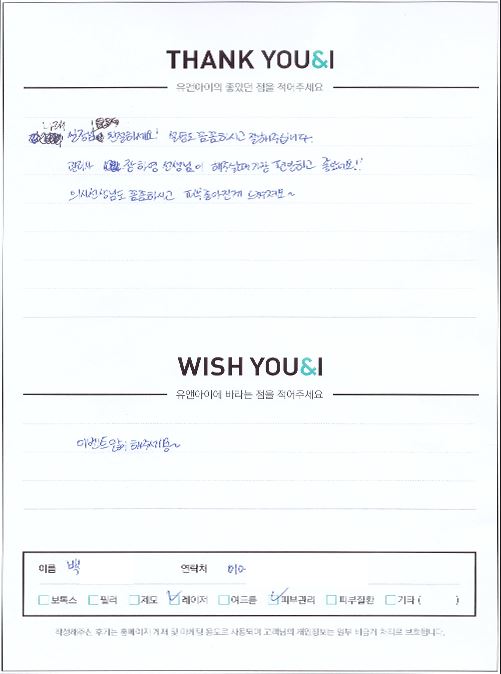 THANK YOU&I
유앤아이의 좋았던 점을 적어주세요
실장님 친절하세요! 설명도 꼼꼼하시고 잘해주십니다.
관리사 장하영 선생님이 해주실때 가장 편안하고 좋았어요!!
의사선생님도 꼼꼼하시고 피부 좋아진게 느껴져요~
WISH YOU&I
유앤아이에 바라는 점을 적어주세요
이벤트 많이 해주세용~
이름 백 연락처 010
보톡스 필러 제모 레이저 여드름 피부관리 피부질환 기타 ( )
작성해주신 후기는 홈페이지 게재 및 마케팅 용도로 사용되며 고객님의 개인정보는 일부 비공개 처리로 보호됩니다.